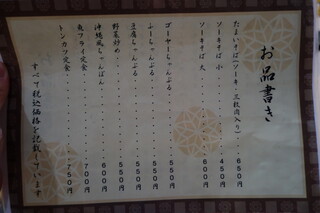 お品書き
たまいそば(ソーキ、三枚肉入り)・・・650円
ソーキそば 小・・・450円
ソーキそば 大・・・600円
ゴーヤーちゃんぷる・・・550円
ふーちゃんぷる・・・550円
豆腐ちゃんぷる・・・550円
野菜炒め・・・550円
沖縄風ちゃんぽん・・・600円
魚フライ定食・・・700円
トンカツ定食・・・750円
すべて税込価格を記載しています